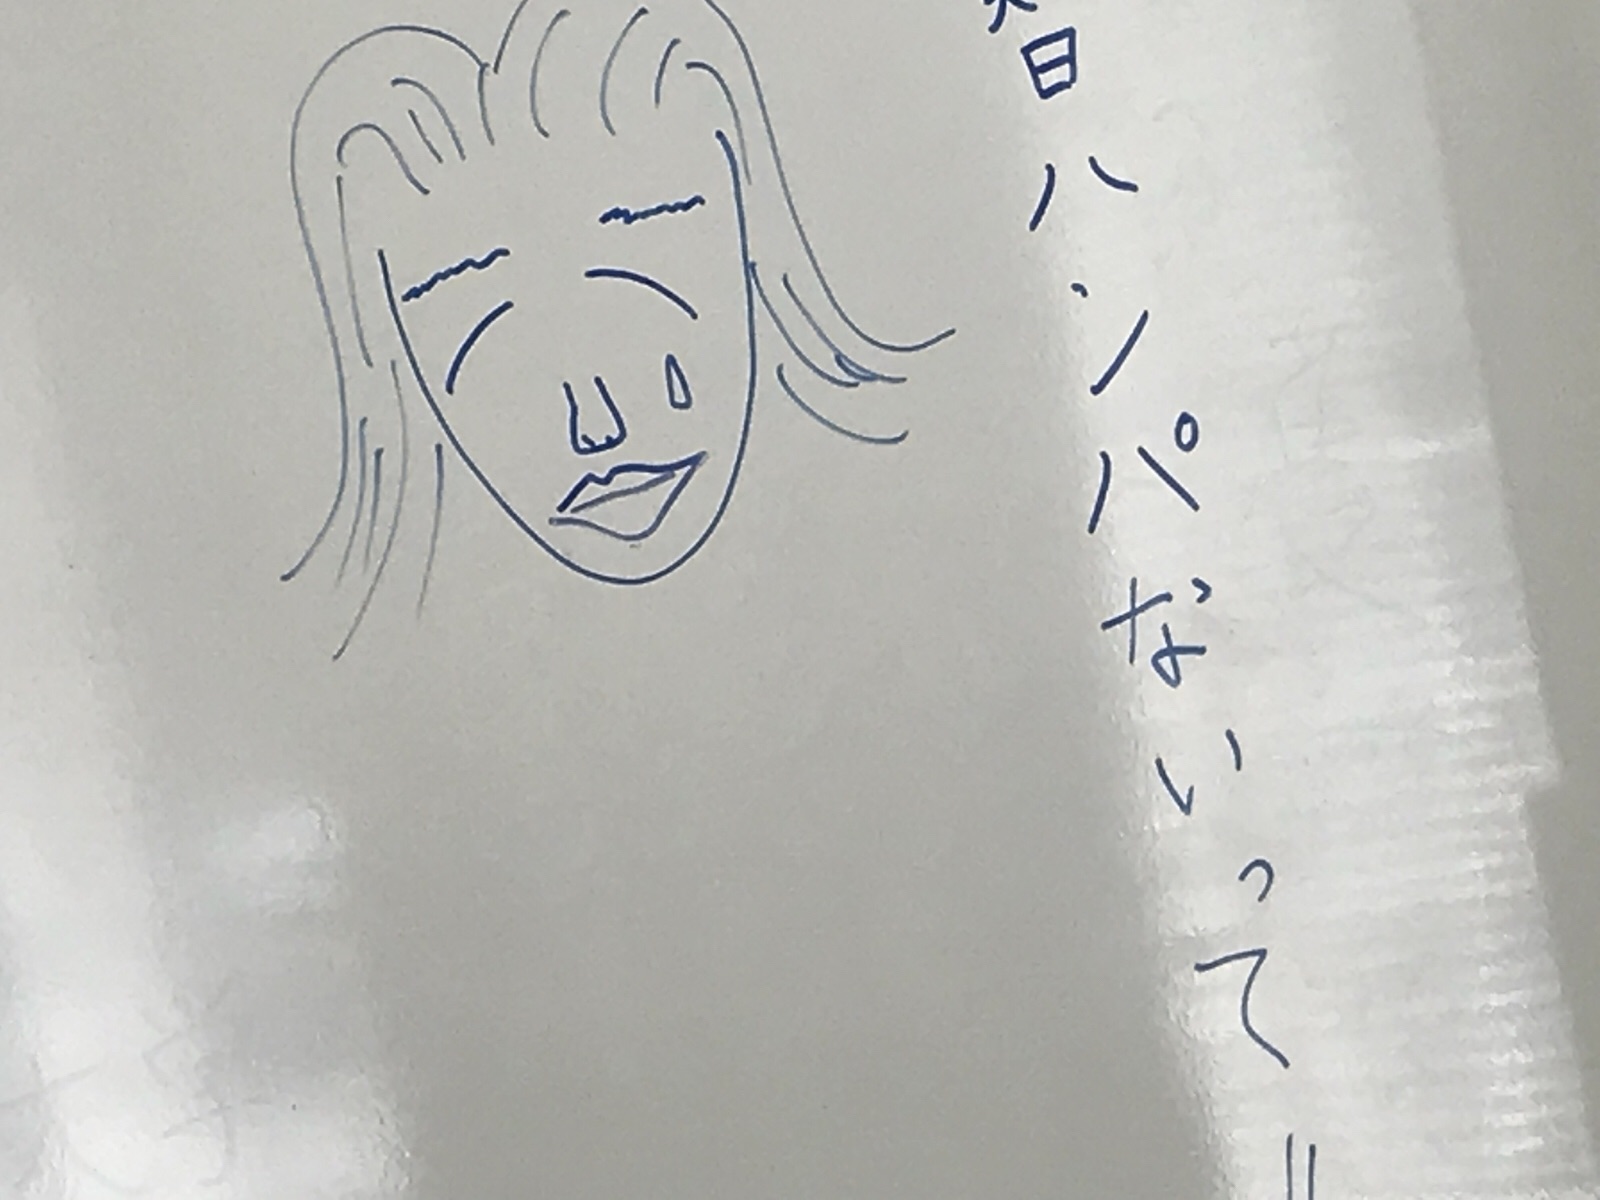 ハンパないって